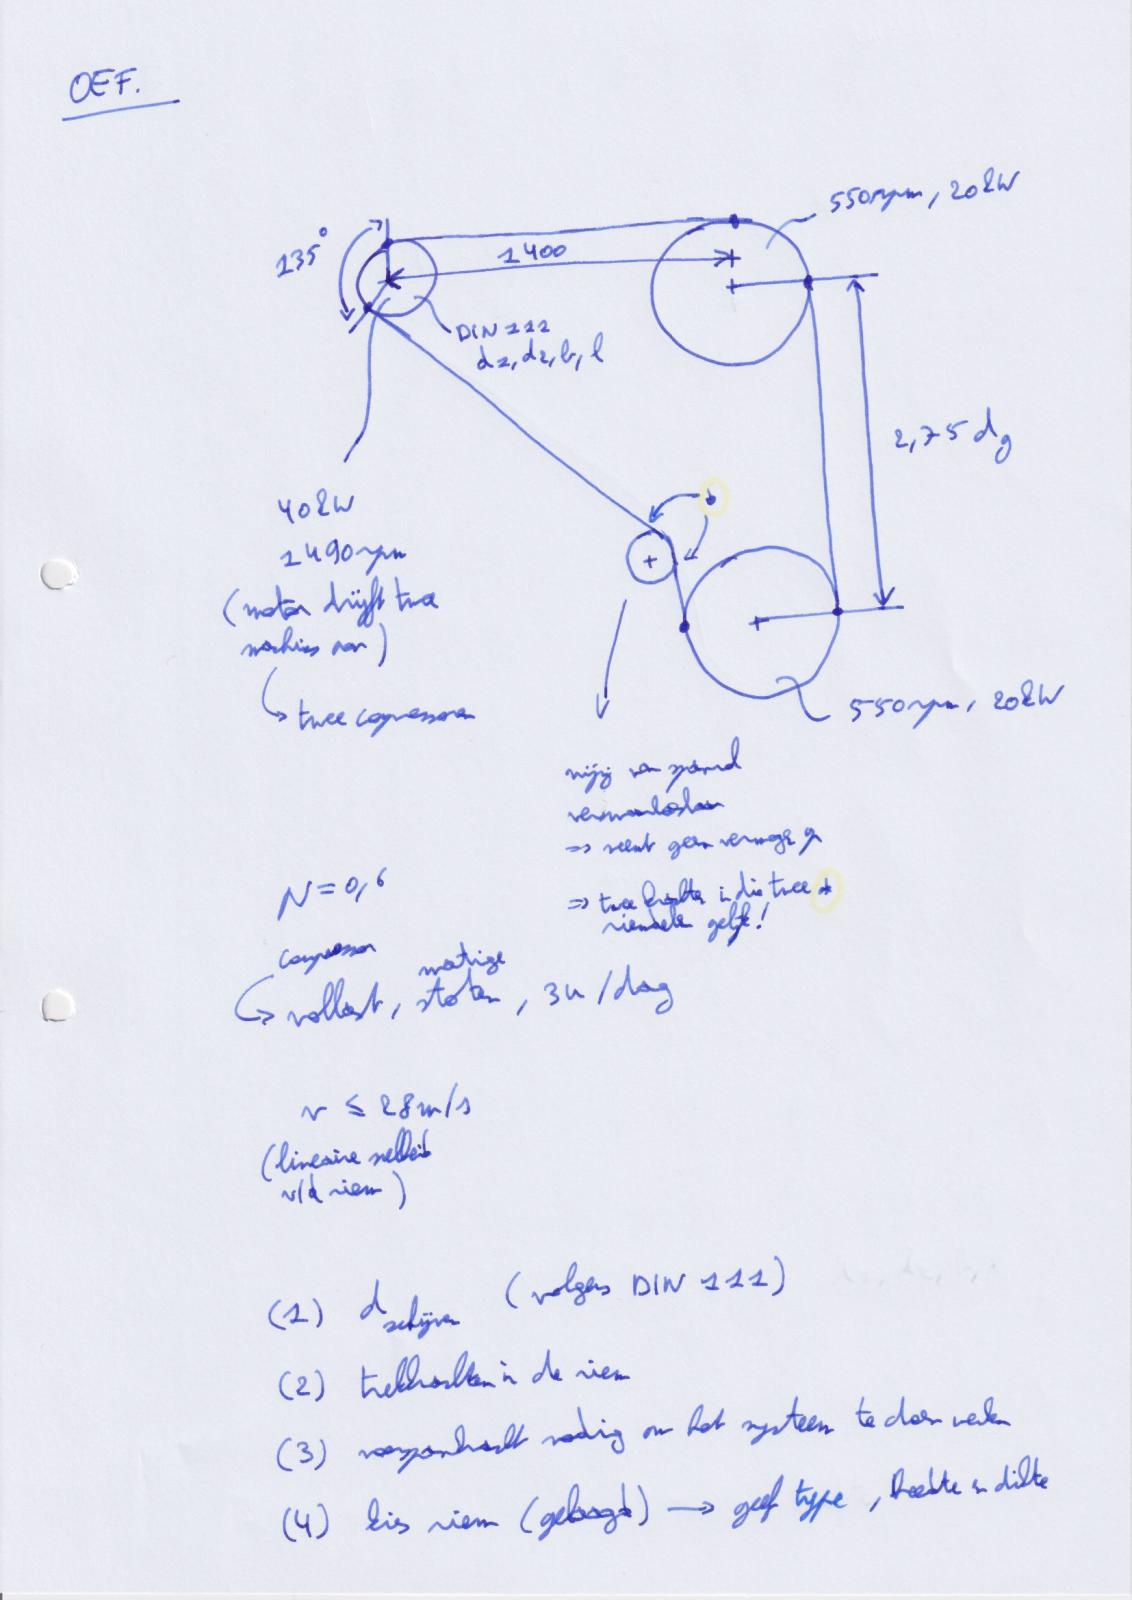 OEF.
550rpm, 20kW
135°
1400
DIN 111
d1, d2, b, l
2,75 dg
40kW
1490rpm
(motor drijft twee
machines aan)
twee compressoren
550rpm, 20kW
wrijving van spanrol
verwaarlozen
=> neemt geen vermogen op
=> twee krachten in die twee *
riemdelen gelijk!
μ = 0,6
compressor
matige
vollast, stoten, 3u/dag
v ≤ 28m/s
(lineaire snelheid
v/d riem)
(1) d schijven (volgens DIN 111)
(2) trekkrachten in de riem
(3) voorspankracht nodig om het systeem te doen werken
(4) kies riem (gelaagd) → geef type, breedte en dikte